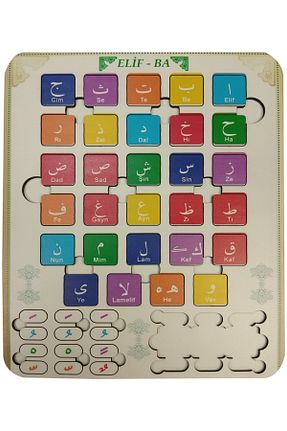 ELİF - BA
ا ب ت ث ج
Cim Se Te Be Elif
ح خ د ذ ر
Rı Zel Dal Hı Ha
ز س ش ص ض
Dad Sad Şin Sin Ze
ط ظ ع غ ف
Fe Gayn Ayn Zı Tı
ق ك ل م ن
Nun Mim Lam Kef Kaf
و ه لا ي
Ye Lamelif He Vav